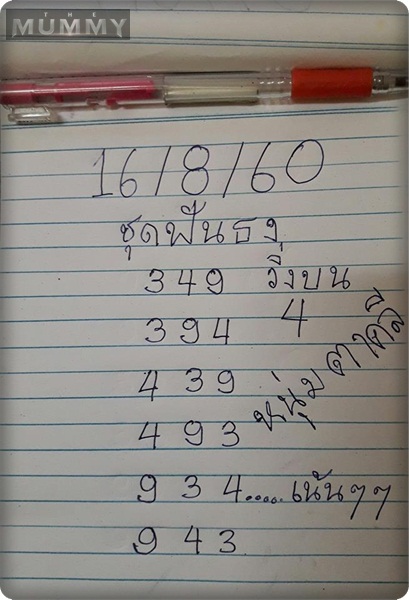 THE
MUMMY
16/8/60
ชุดฟันธง
349 วิ่งบน
394 4
439
493
934..... เน้นๆๆ
943
หนุ่ม ตาคลี